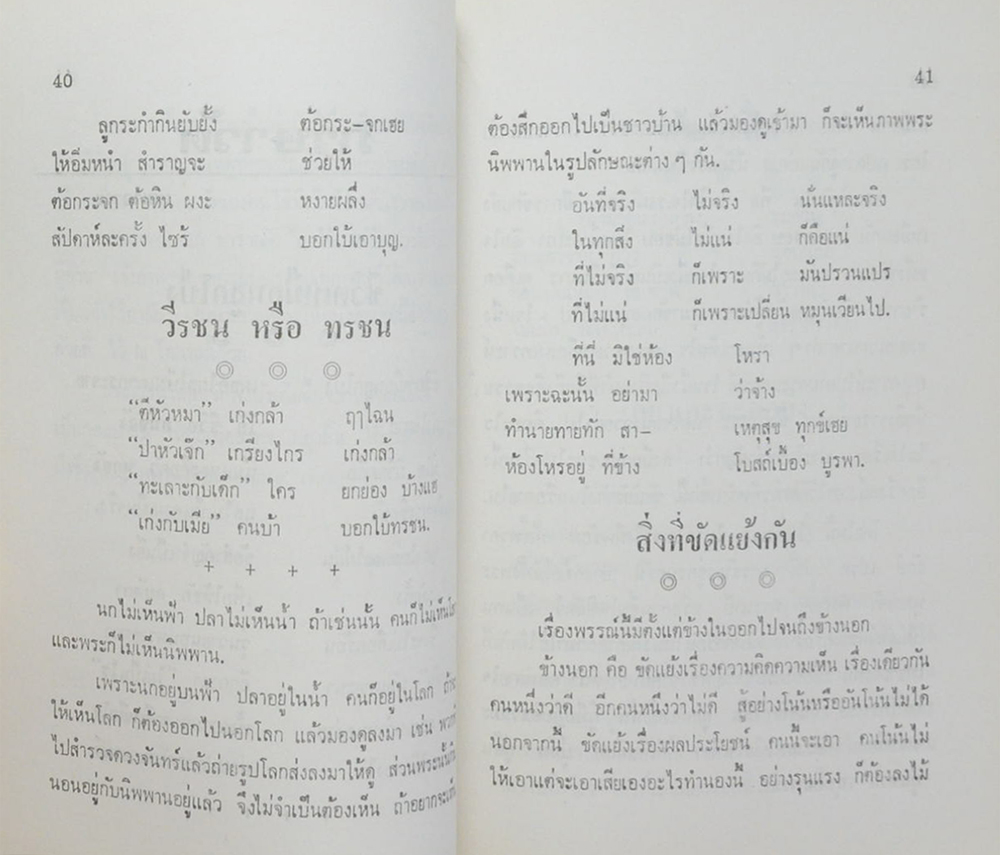 40
ลูกระกำกินยับยั้ง ต้อกระ-จกเฮย
ให้อิ่มหนำ สำราญจะ ช่วยให้
ต้อกระจก ต้อหิน ผงะ หงายผลึ่ง
สัปดาห์ละครั้ง ไซร้ บอกใบ้เอาบุญ.
วีรชน หรือ ทรชน
"ตีหัวหมา" เก่งกล้า ฤๅไฉน
"ปาหัวเจ๊ก" เกรียงไกร เก่งกล้า
"ทะเลาะกับเด็ก" ใคร ยกย่อง บ้างแฮ
"เก่งกับเมีย" คนบ้า บอกใบ้ทรชน.
+ + + +
นกไม่เห็นฟ้า ปลาไม่เห็นน้ำ ถ้าเช่นนั้น คนก็ไม่เห็น
และพระก็ไม่เห็นนิพพาน.
เพราะนกอยู่บนฟ้า ปลาอยู่ในน้ำ คนก็อยู่ในโลก
ให้เห็นโลก ก็ต้องออกไปนอกโลก แล้วมองดูลงมา เช่น
ไปสำรวจดวงจันทร์แล้วถ่ายรูปโลกส่งลงมาให้ดู ส่วนพระนั้น
นอนอยู่กับนิพพานอยู่แล้ว จึงไม่จำเป็นต้องเห็น ถ้าอยากจะ
41
ต้องสึกออกไปเป็นชาวบ้าน แล้วมองดูเข้ามา ก็จะเห็นภาพพระ
นิพพานในรูปลักษณะต่าง ๆ กัน.
อันที่จริง ไม่จริง นั่นแหละจริง
ในทุกสิ่ง ไม่แน่ ก็คือแน่
ที่ไม่จริง ก็เพราะ มันปรวนแปร
ที่ไม่แน่ ก็เพราะเปลี่ยน หมุนเวียนไป.
ที่นี่ มิใช่ห้อง โหรา
เพราะฉะนั้น อย่ามา ว่าจ้าง
ทำนายทายทัก สา- เหตุสุข ทุกข์เฮย
ห้องโหรอยู่ ที่ข้าง โบสถ์เบื้อง บูรพา.
สิ่งที่ขัดแย้งกัน
เรื่องพรรณ์นี้มีตั้งแต่ข้างในออกไปจนถึงข้างนอก
ข้างนอก คือ ขัดแย้งเรื่องความคิดความเห็น เรื่องเดียวกัน
คนหนึ่งว่าดี อีกคนหนึ่งว่าไม่ดี สู้อย่างโน้นหรืออันโน้นไม่ได้
นอกจากนี้ ขัดแย้งเรื่องผลประโยชน์ คนนี้จะเอา คนโน้นไม่
ให้เอาแต่จะเอาเสียเองอะไรทำนองนี้ อย่างรุนแรง ก็ต้องลงไม้